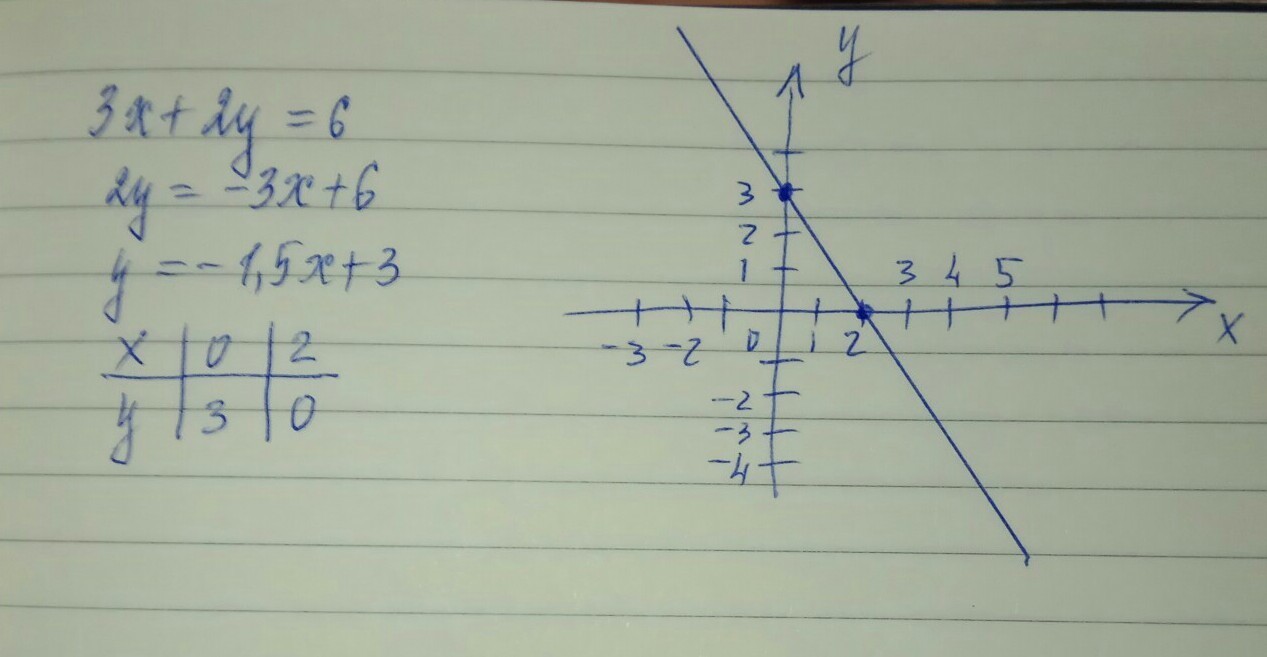 3x + 2y = 6
2y = -3x + 6
y = -1,5x + 3
x | 0 | 2
y | 3 | 0
y
3
2
1
3 4 5
-3 -2 0 1 2
x
-2
-3
-4